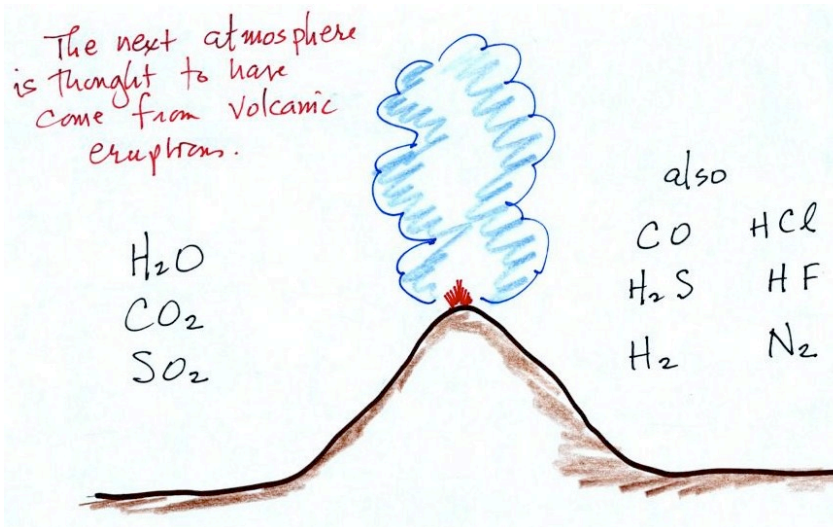 The next atmosphere
is thought to have
come from volcanic
eruptions.
H₂O
CO₂
SO₂
also
CO HCl
H₂S HF
H₂ N₂